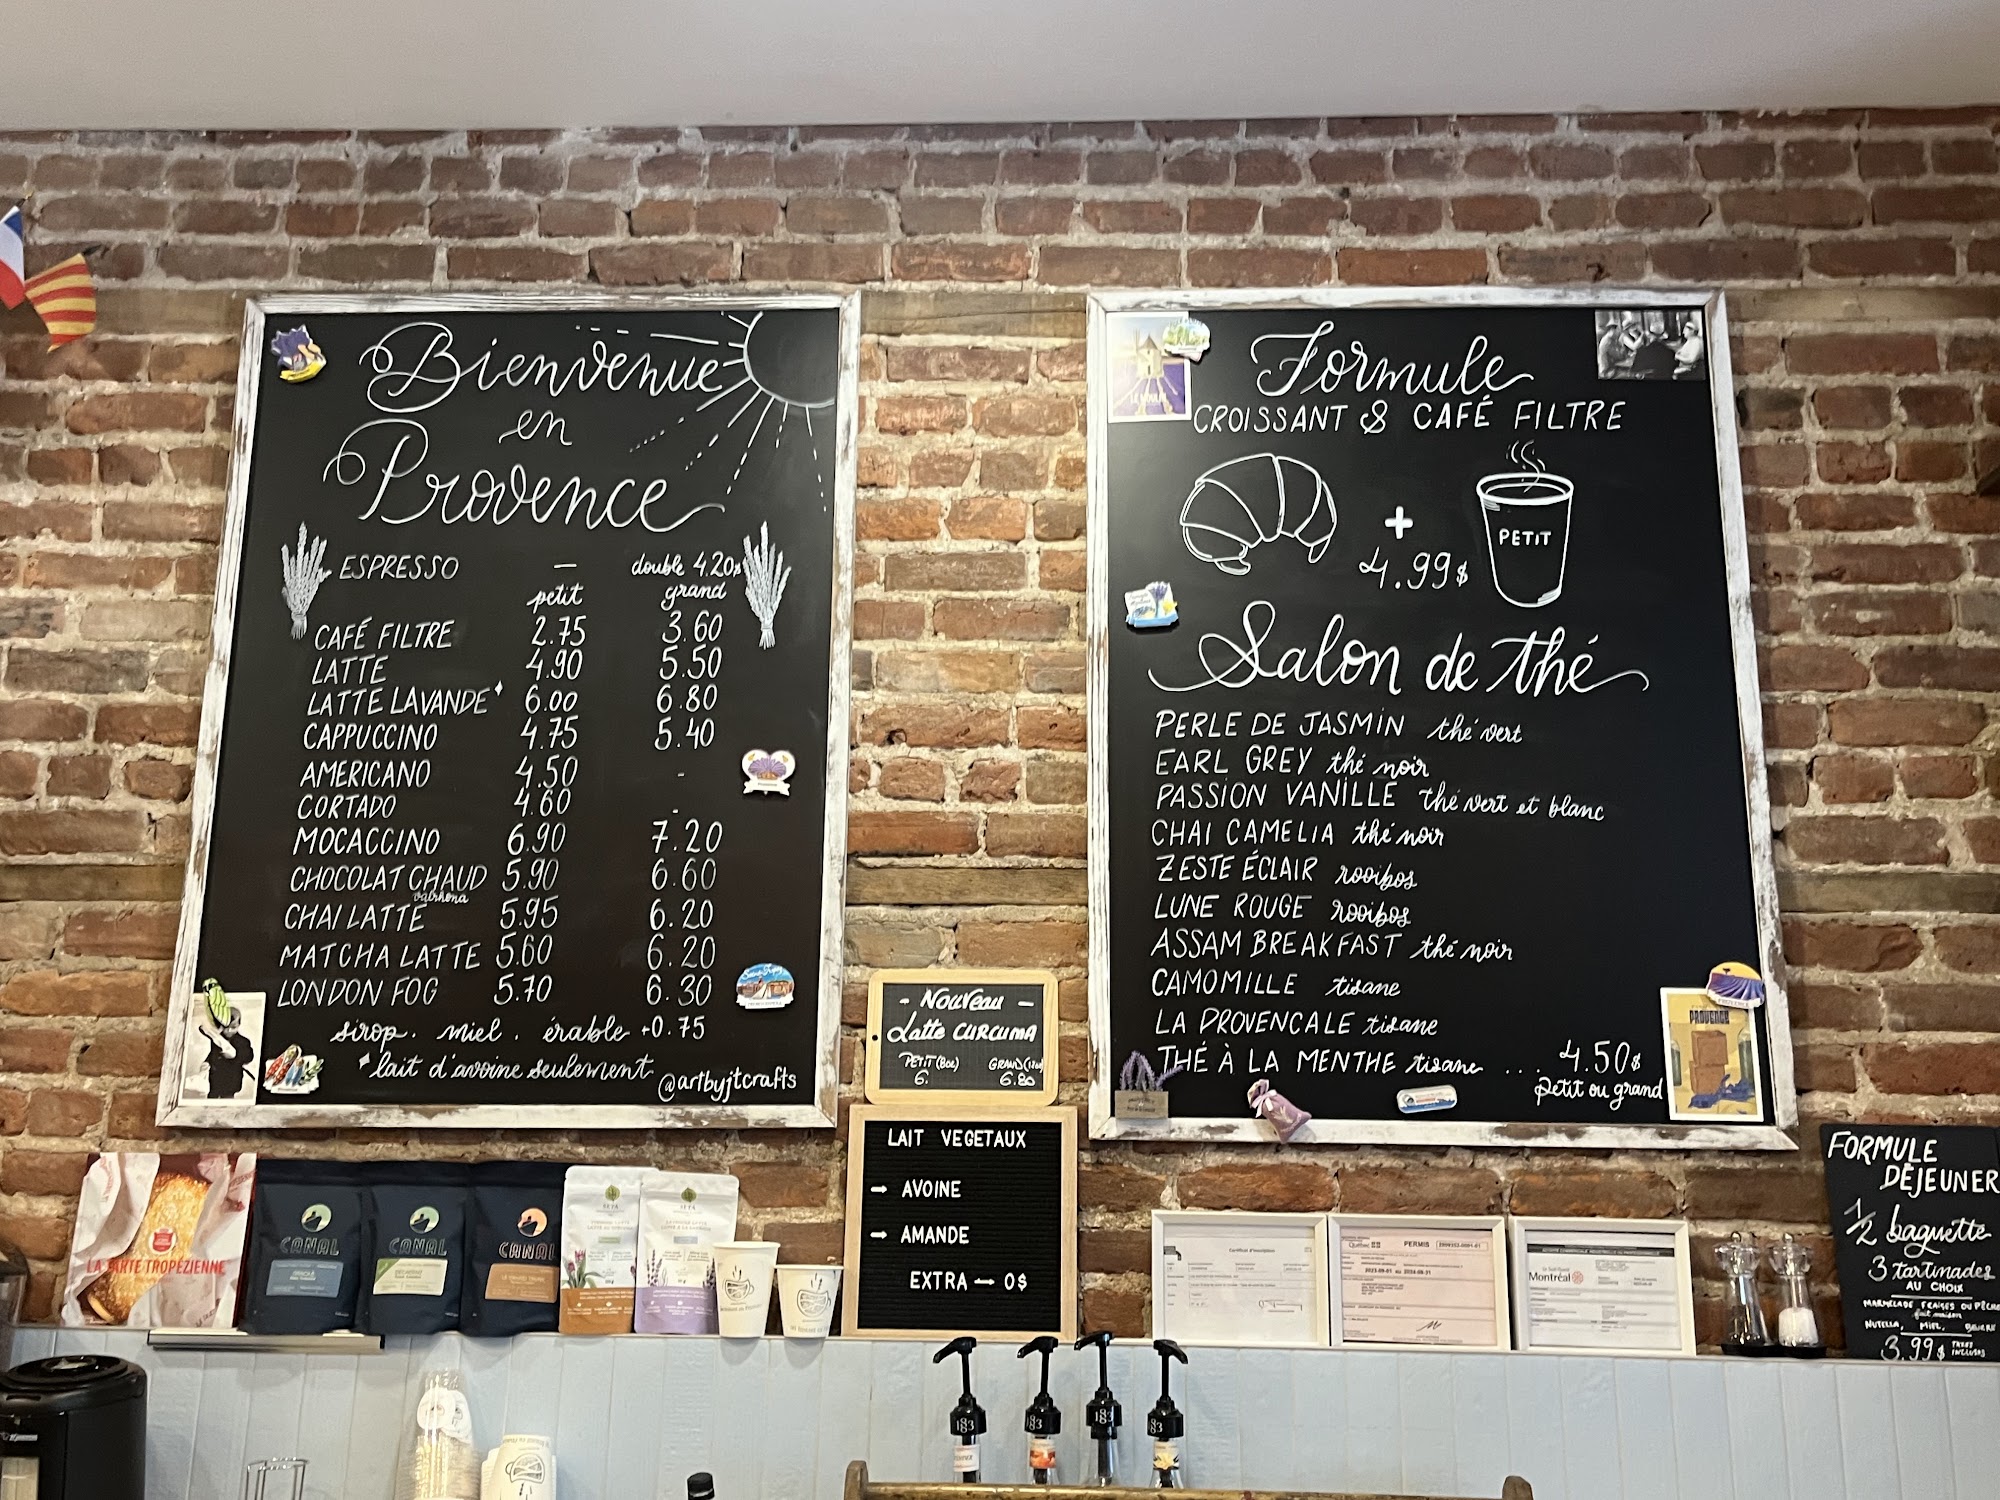 Bienvenue
en
Provence
ESPRESSO — double 4.20$
petit grand
CAFÉ FILTRE 2.75 3.60
LATTE 4.90 5.50
LATTE LAVANDE* 6.00 6.80
CAPPUCCINO 4.75 5.40
AMERICANO 4.50 -
CORTADO 4.60 -
MOCACCINO 6.90 7.20
CHOCOLAT CHAUD 5.90 6.60
valrhona
CHAI LATTE 5.95 6.20
MATCHA LATTE 5.60 6.20
LONDON FOG 5.70 6.30
sirop. miel. érable +0.75
*lait d'avoine seulement
@artbyjtcrafts
Formule
CROISSANT & CAFÉ FILTRE
+
4.99$
PETIT
Salon de thé
PERLE DE JASMIN thé vert
EARL GREY thé noir
PASSION VANILLE thé vert et blanc
CHAI CAMELIA thé noir
ZESTE ÉCLAIR rooibos
LUNE ROUGE rooibos
ASSAM BREAKFAST thé noir
CAMOMILLE tisane
LA PROVENCALE tisane
THÉ À LA MENTHE tisane ... 4.50$
petit ou grand
PROVENCE
- Nouveau -
Latte CURCUMA
PETIT (8oz) GRAND (12oz)
6. 6.80
LAIT VEGETAUX
→ AVOINE
→ AMANDE
EXTRA → 0$
FORMULE
DÉJEUNER
1/2 baguette
3 tartinades
AU CHOIX
MARMELADE FRAISES OU PÊCHE
fait maison
NUTELLA, MIEL, BEURRE
3.99$ TAXES INCLUSES
LA TARTE TROPÉZIENNE
CANAL
CANAL
CANAL
Certificat d'inscription
Québec PERMIS
Montréal
1883
1883
1883
1883